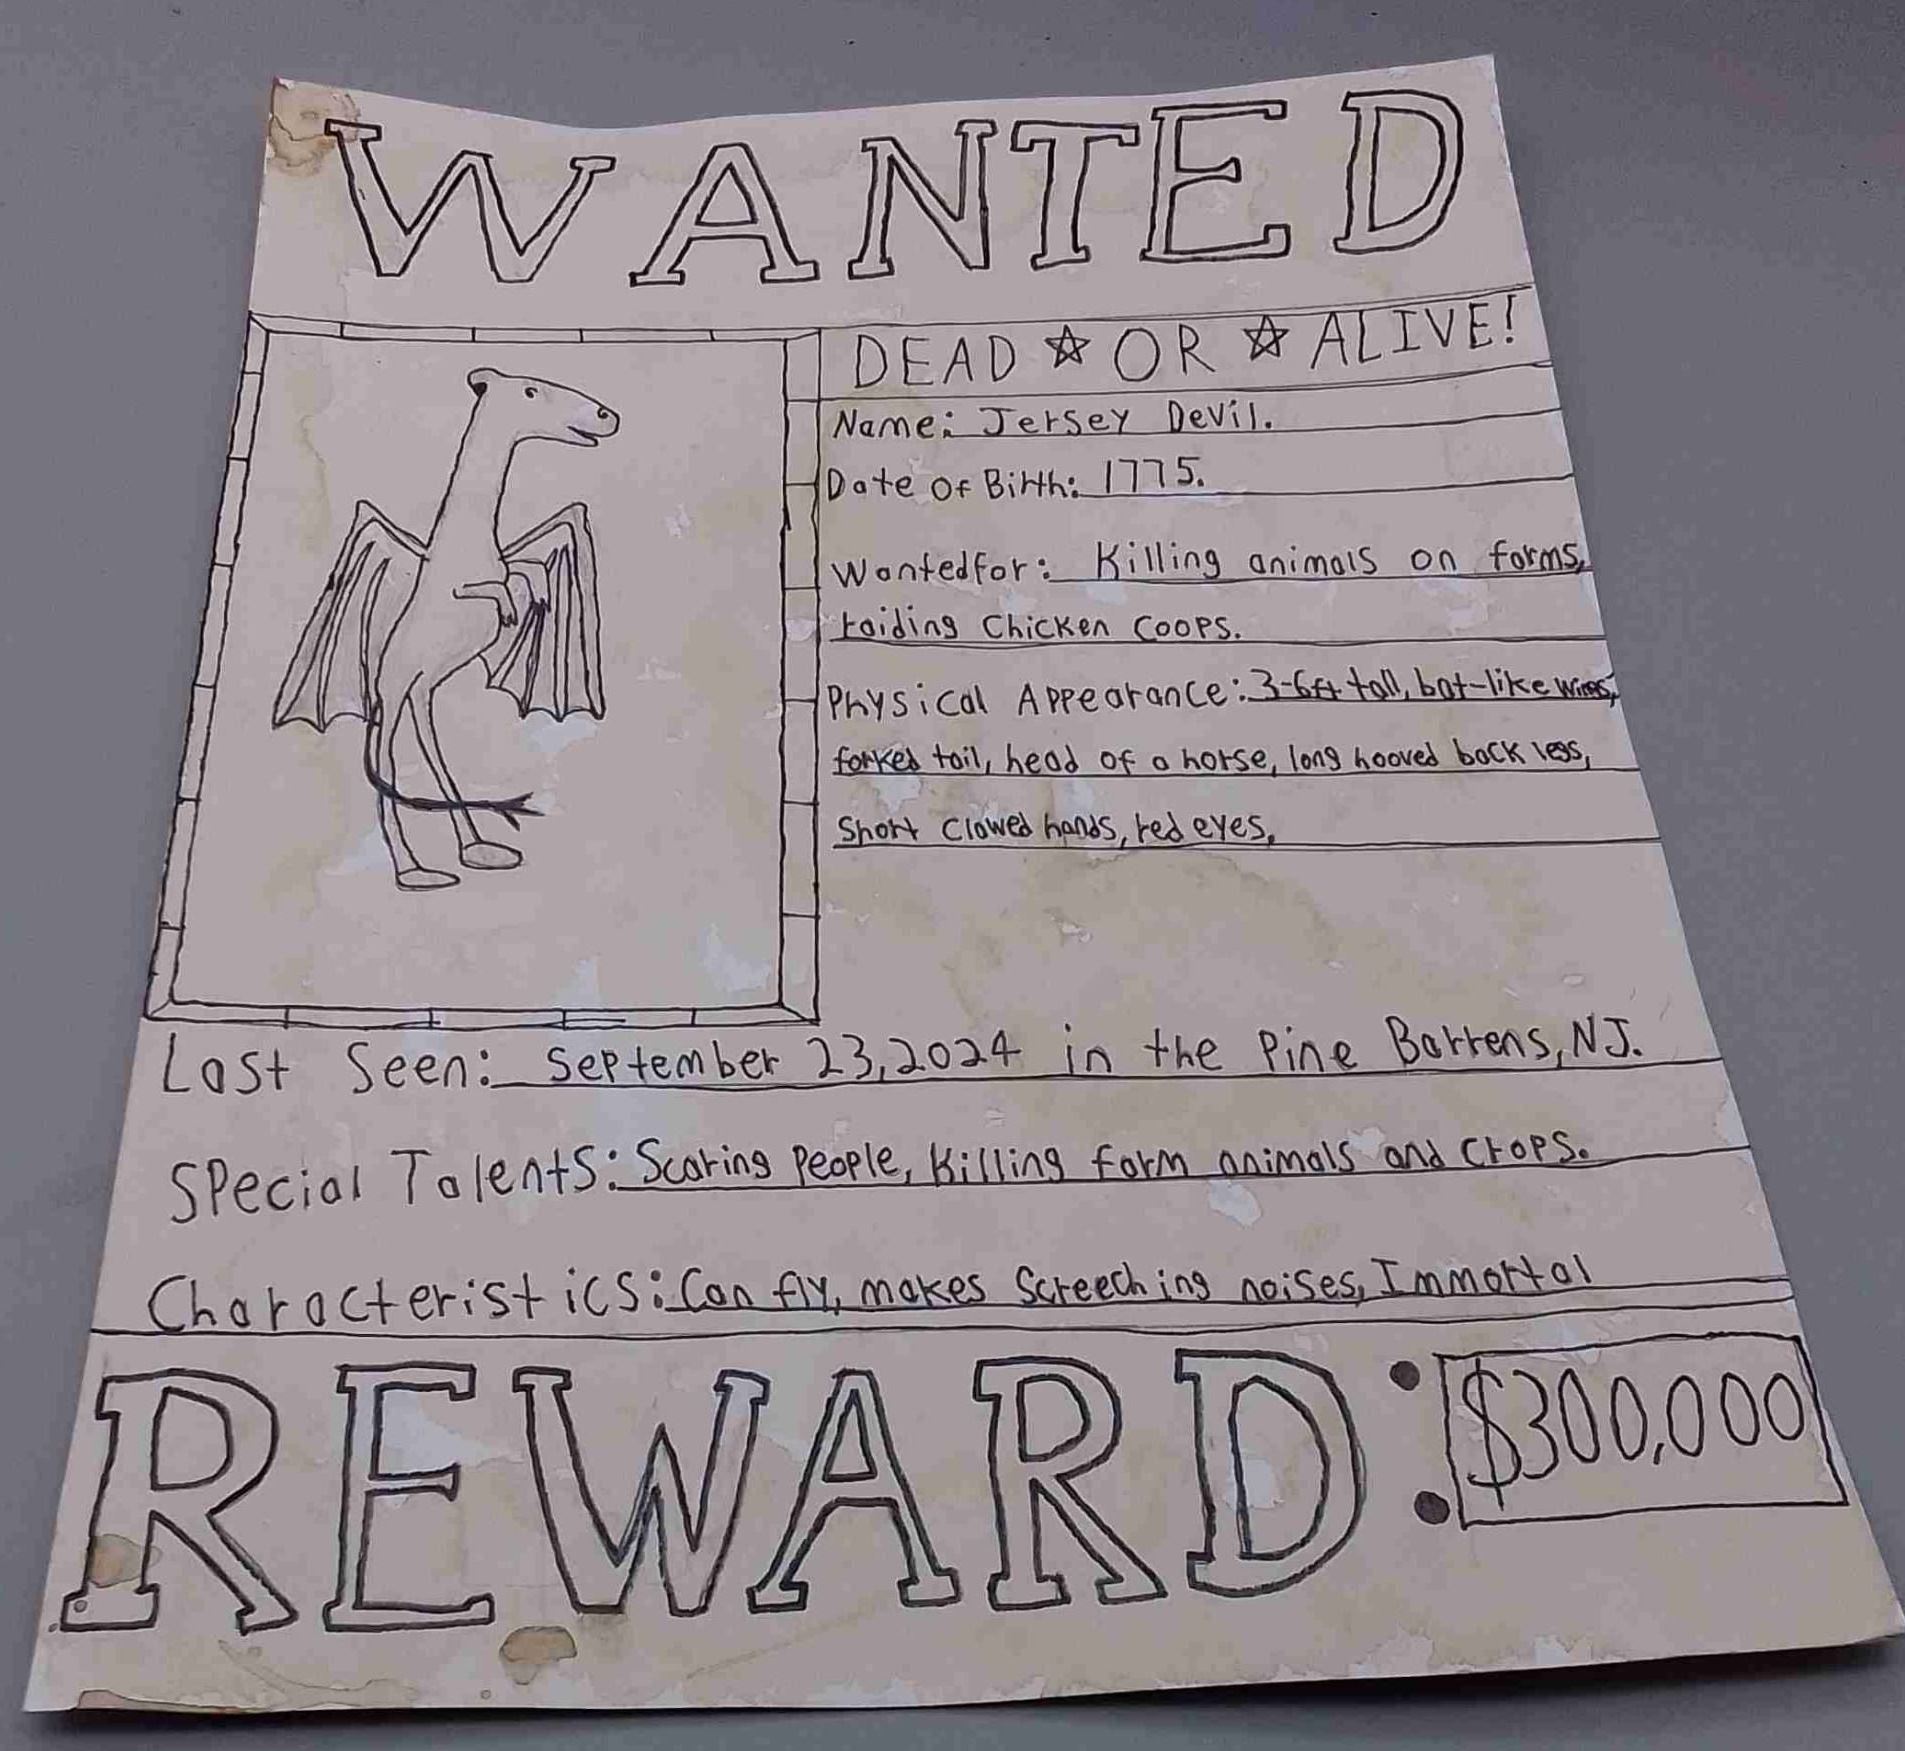 WANTED
DEAD ☆ OR ☆ ALIVE!
Name: Jersey Devil.
Date of Birth: 1775.
Wanted for: Killing animals on farms,
raiding Chicken Coops.
Physical Appearance: 3-6ft tall, bat-like wings,
forked tail, head of a horse, long hooved back legs,
Short Clawed hands, red eyes,
Last Seen: September 23, 2024 in the Pine Barrens, NJ.
Special Talents: Scaring People, Killing farm animals and Crops.
Characteristics: Can fly, makes Screeching noises, Immortal
REWARD: $300,000